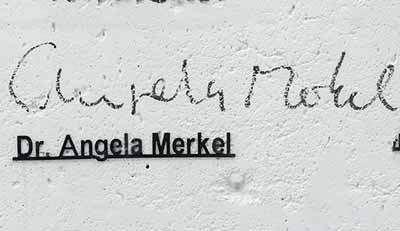 Angela Merkel
Dr. Angela Merkel